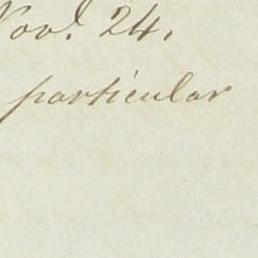 Nov. 24.
particular